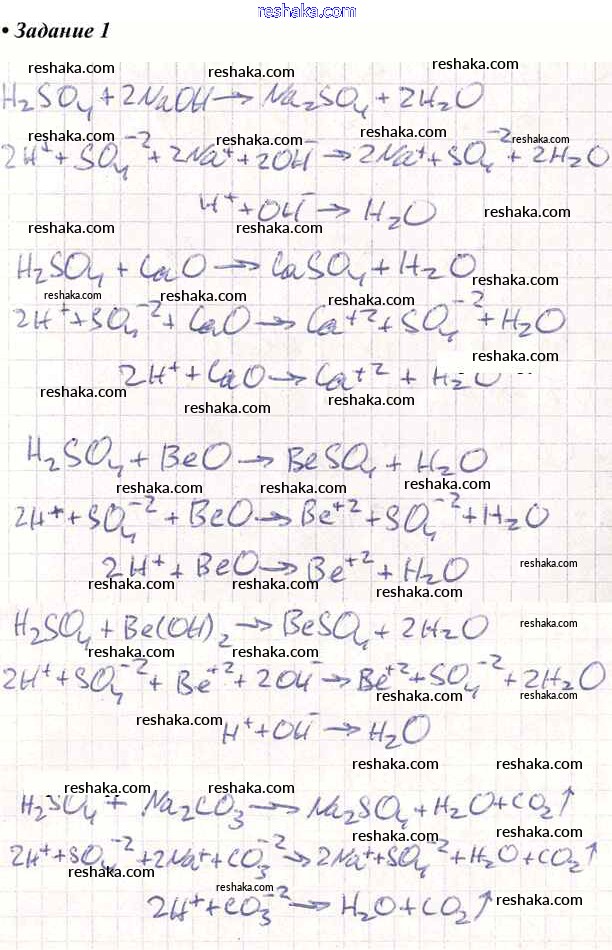 reshaka.com
• Задание 1
reshaka.com reshaka.com reshaka.com
H₂SO₄ + 2NaOH → Na₂SO₄ + 2H₂O
reshaka.com reshaka.com reshaka.com
2H⁺ + SO₄⁻² + 2Na⁺ + 2OH⁻ → 2Na⁺ + SO₄⁻² + 2H₂O
H⁺ + OH⁻ → H₂O
reshaka.com
reshaka.com reshaka.com
H₂SO₄ + CaO → CaSO₄ + H₂O
reshaka.com reshaka.com reshaka.com reshaka.com
2H⁺ + SO₄⁻² + CaO → Ca⁺² + SO₄⁻² + H₂O
reshaka.com
2H⁺ + CaO → Ca⁺² + H₂O
reshaka.com reshaka.com reshaka.com
H₂SO₄ + BeO → BeSO₄ + H₂O
reshaka.com reshaka.com reshaka.com
2H⁺ + SO₄⁻² + BeO → Be⁺² + SO₄⁻² + H₂O
2H⁺ + BeO → Be⁺² + H₂O
reshaka.com
reshaka.com reshaka.com reshaka.com
H₂SO₄ + Be(OH)₂ → BeSO₄ + 2H₂O
reshaka.com
reshaka.com reshaka.com
2H⁺ + SO₄⁻² + Be⁺² + 2OH⁻ → Be⁺² + SO₄⁻² + 2H₂O
reshaka.com
reshaka.com
H⁺ + OH⁻ → H₂O
reshaka.com reshaka.com
reshaka.com reshaka.com reshaka.com
H₂SO₄ + Na₂CO₃ → Na₂SO₄ + H₂O + CO₂↑
reshaka.com reshaka.com reshaka.com
2H⁺ + SO₄⁻² + 2Na⁺ + CO₃⁻² → 2Na⁺ + SO₄⁻² + H₂O + CO₂↑
reshaka.com reshaka.com reshaka.com
2H⁺ + CO₃⁻² → H₂O + CO₂↑
reshaka.com